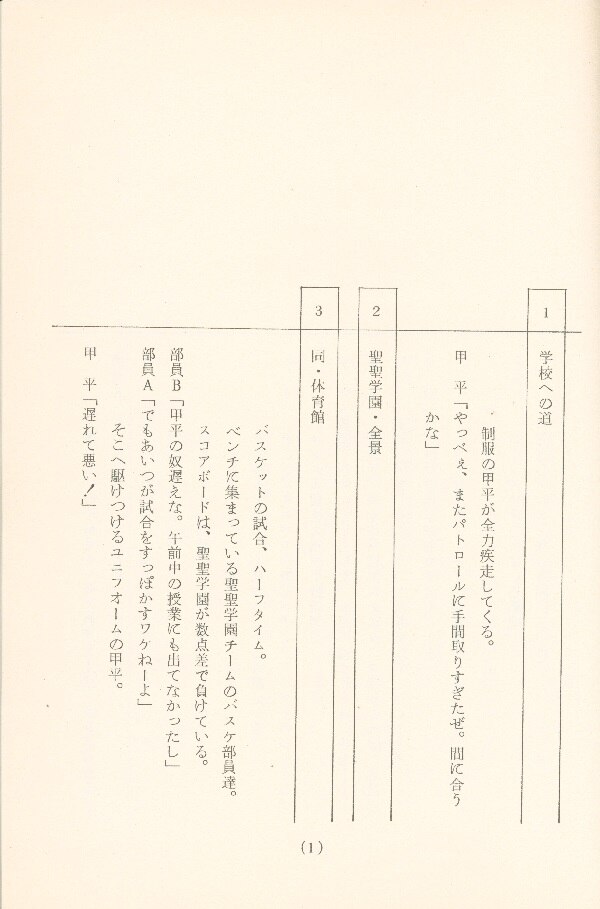 1 学校への道
制服の甲平が全力疾走してくる。
甲　平「やっべぇ、またパトロールに手間取りすぎたぜ。間に合う
かな」
2 聖聖学園・全景
3 同・体育館
バスケットの試合、ハーフタイム。
ベンチに集まっている聖聖学園チームのバスケ部員達。
スコアボードは、聖聖学園が数点差で負けている。
部員B「甲平の奴遅えな。午前中の授業にも出てなかったし」
部員A「でもあいつが試合をすっぽかすワケねーよ」
そこへ駆けつけるユニフォームの甲平。
甲　平「遅れて悪い！」
(1)